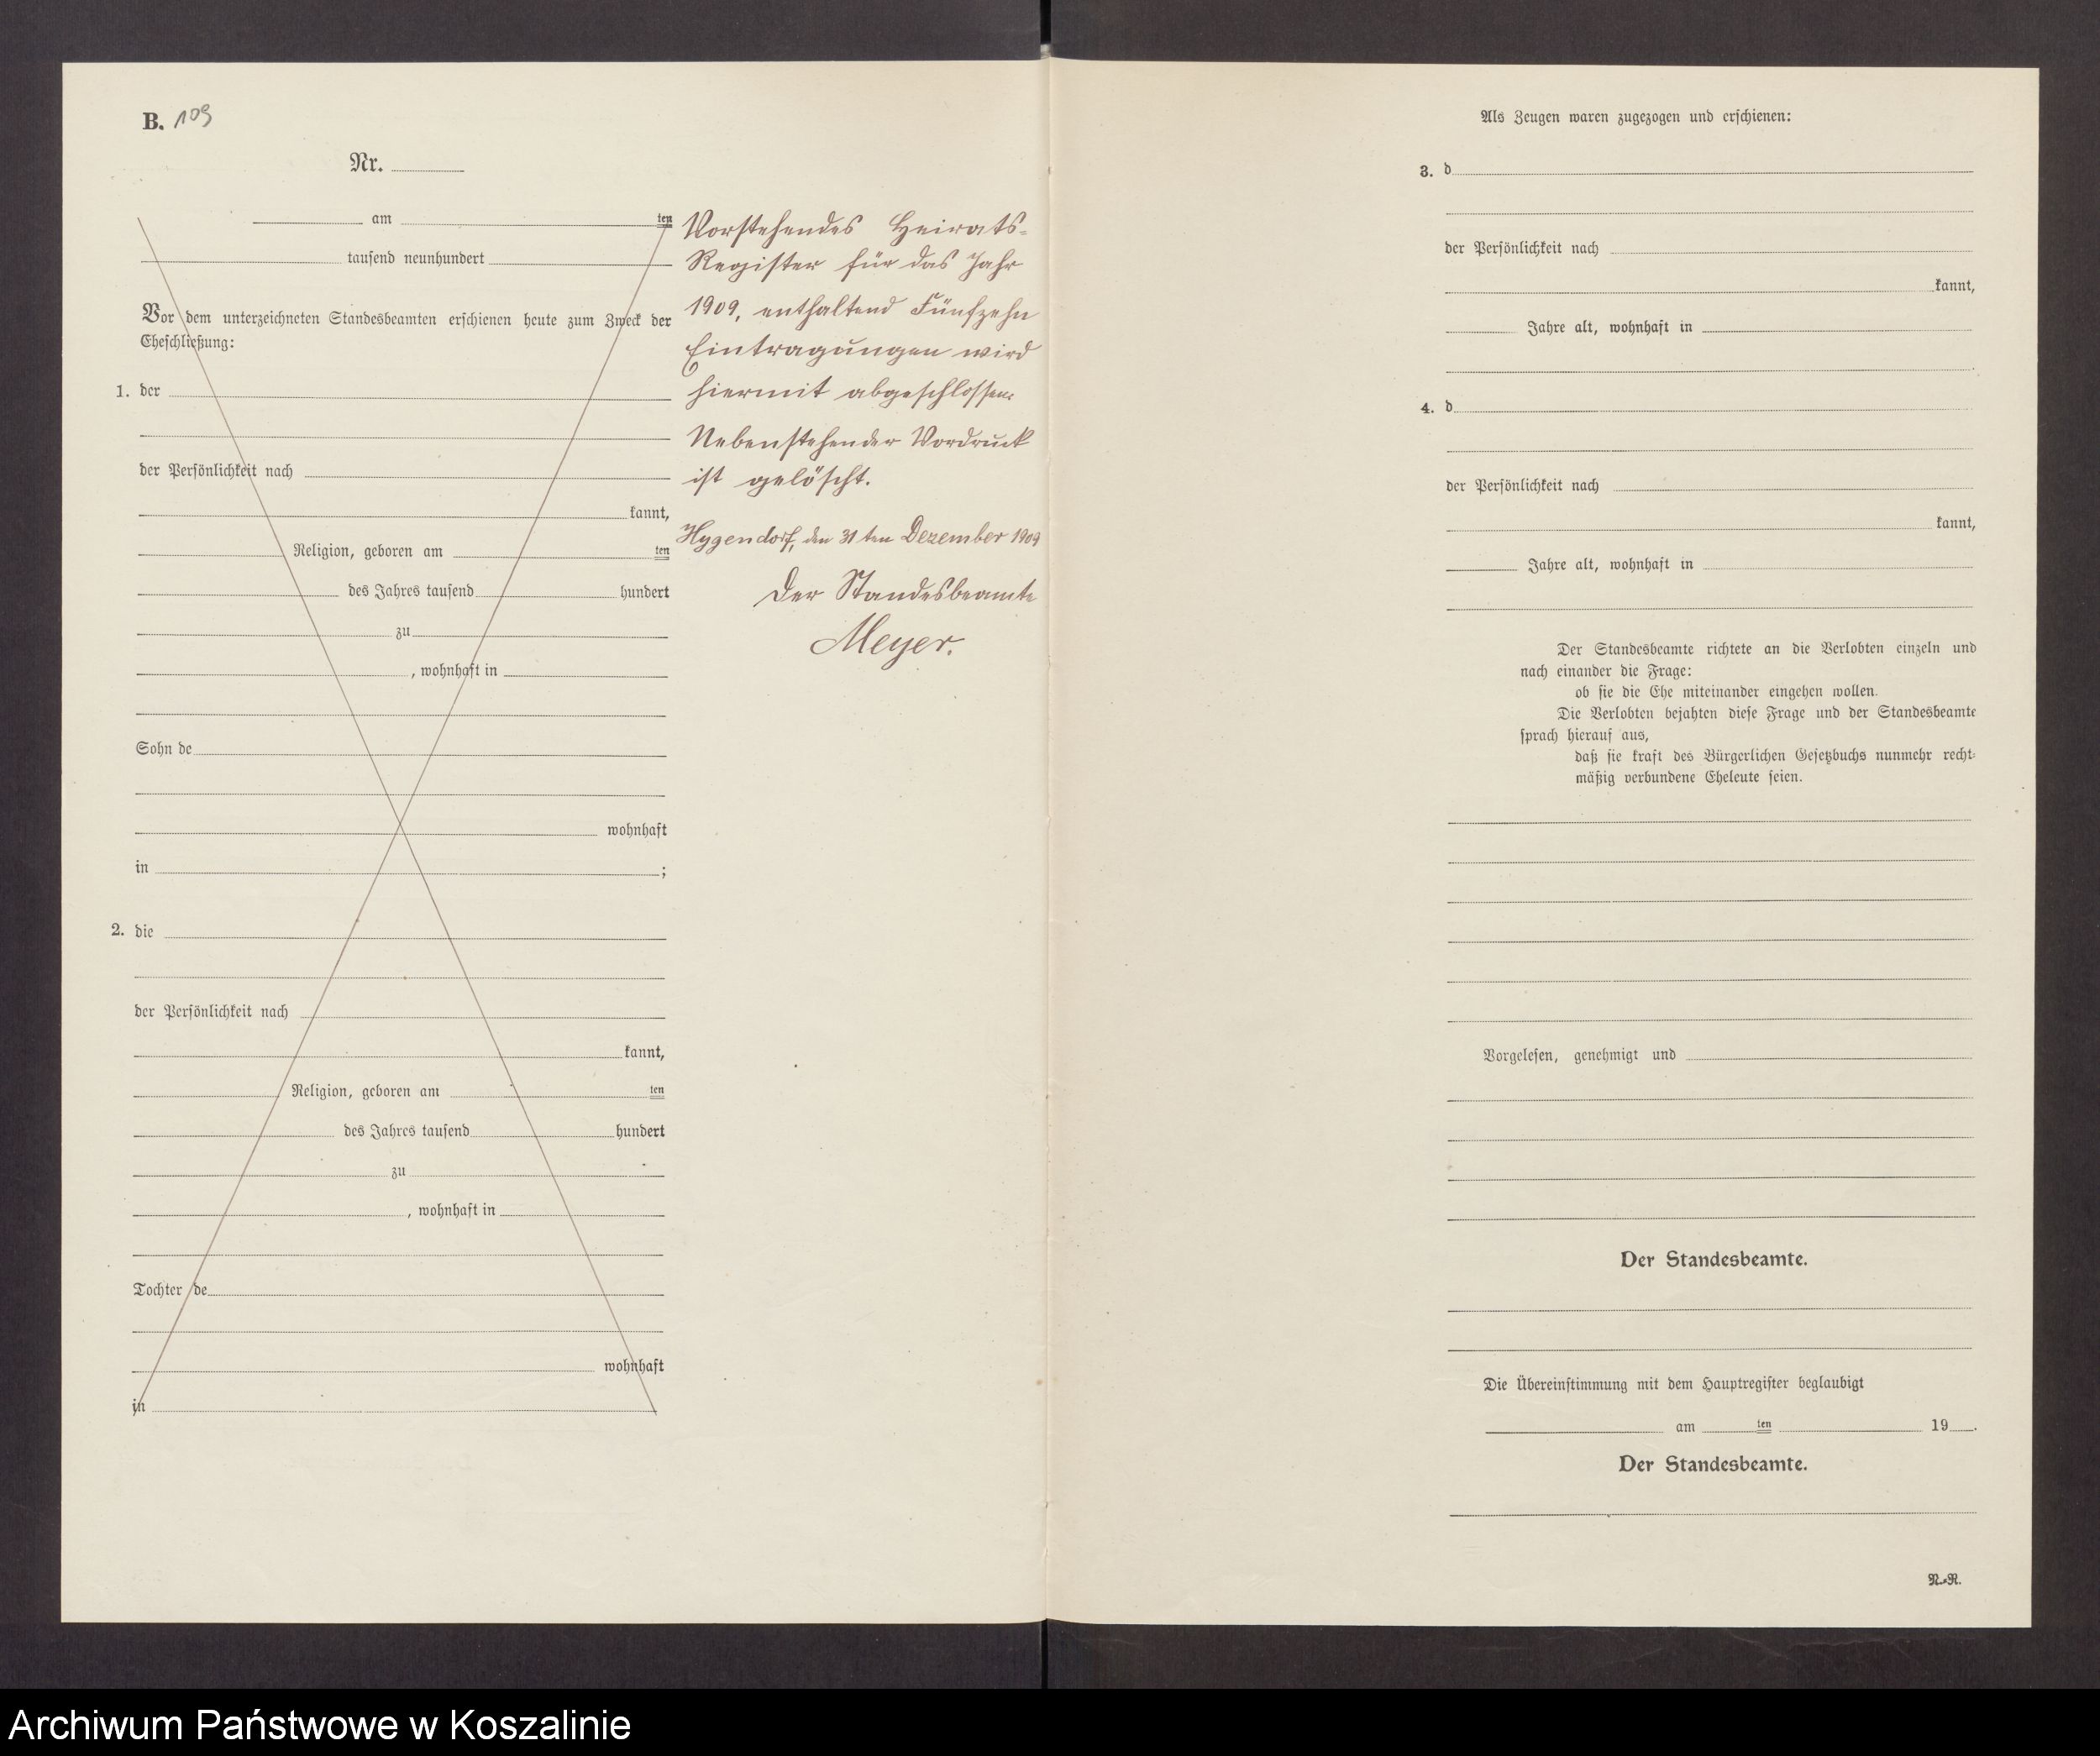 B. 109
Nr.
am ten
tausend neunhundert
Vor dem unterzeichneten Standesbeamten erschienen heute zum Zweck der
Eheschließung:
1. der
der Persönlichkeit nach
kannt,
Religion, geboren am ten
des Jahres tausend hundert
zu
, wohnhaft in
Sohn de
wohnhaft
in ;
2. die
der Persönlichkeit nach
kannt,
Religion, geboren am ten
des Jahres tausend hundert
zu
, wohnhaft in
Tochter de
wohnhaft
in
Vorstehendes Heirats-
Register für das Jahr
1909, enthaltend Fünfzehn
Eintragungen wird
hiermit abgeschlossen.
Nebenstehender Vordruck
ist gelöscht.
Hygendorf, den 31ten Dezember 1909
Der Standesbeamte
Meyer.
Als Zeugen waren zugezogen und erschienen:
3. d
der Persönlichkeit nach
kannt,
Jahre alt, wohnhaft in
4. d
der Persönlichkeit nach
kannt,
Jahre alt, wohnhaft in
Der Standesbeamte richtete an die Verlobten einzeln und
nach einander die Frage:
ob sie die Ehe miteinander eingehen wollen.
Die Verlobten bejahten diese Frage und der Standesbeamte
sprach hierauf aus,
daß sie kraft des Bürgerlichen Gesetzbuchs nunmehr recht-
mäßig verbundene Eheleute seien.
Vorgelesen, genehmigt und
Der Standesbeamte.
Die Übereinstimmung mit dem Hauptregister beglaubigt
am ten 19 .
Der Standesbeamte.
N.-R.
Archiwum Państwowe w Koszalinie